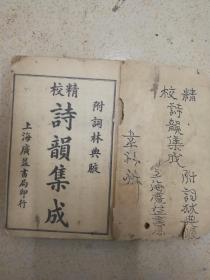 精校
詩韻集成
附詞林典
上海廣益書
附詞林典腋
精校
詩韻集成
上海廣益書局印行